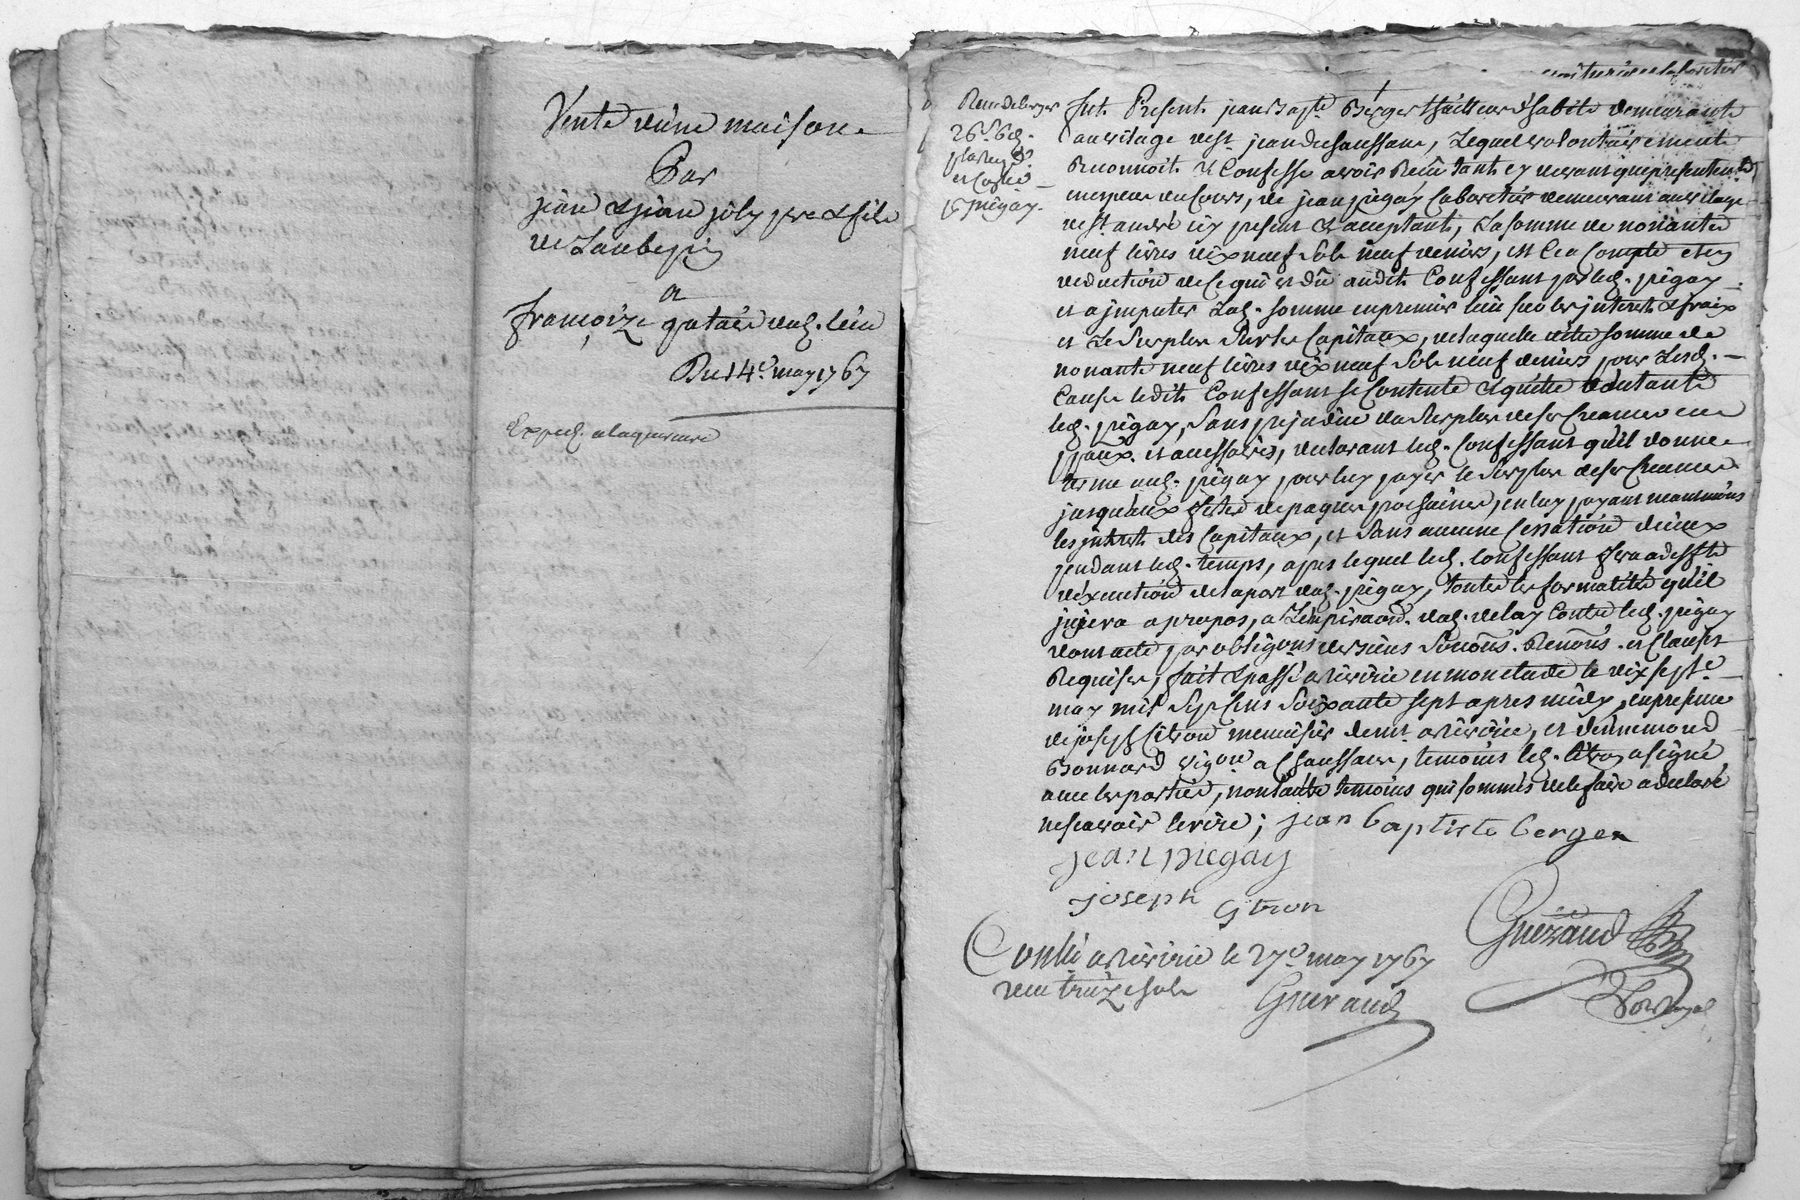 Vente d'une maison
Par
jean & jean joly pere & fils
de Laubepin
a
françoize gataie dud. lieu
Du 14e may 1767
Exped. a laquereure
26e 6d.
et Coppie
Sr piégay
fut Present jean Bapte Berger tailleur d'habits demeurant
au vilage de st jean , Lequel volontairement
Reconnoit & Confesse avoir Reçu tant cy devant que presentement
en especes du cours, de jean piégay Cabaretier demeurant au vilage
de st andré icy present & acceptant, La somme de nonante
neuf livres dix neuf sols neuf deniers, et ce a Compte et en
deduction de ce qui est dû audit Confessant par led. piégay
et a jmputer Lad. somme en premier lieu sur les jnterets & fraix
et Le Surplus Sur les Capitaux, de laquelle dite somme de
nonante neuf livres dix neuf sols neuf deniers pour Lesd.
Cause ledit Confessant se Contente & quitte d'autant
led. piégay, Sans prejudice du Surplus de ses Creances en
ppaux et accessoires, declarant led. Confessant qu'il donne
terme aud. piégay pour luy payer le Surplus de ses Creances
jusqu'aux fêtes de paques prochaines, en luy payant neantmoins
les jnterets des Capitaux, et Sans aucune Cessation d'iceux
pendant led. temps, apres lequel led. Confessant fera a deffte
d'execution de la part dud. piégay, toutes les formalités qu'il
jugera a propos, a L'expiraon. dud. delay Contre led. piégay
dont acte par obligons de biens Soumons. Renons. et Clauses
Requises, fait & passé a en mon etude le dix sept
may mil Sept Cens Soixante sept apres midy, en presence
de joseph Citron menuisier demt a , et d'ennemond
Bonnard vigon a Chaussan, temoins led. Citron a signé
avec les parties, non l'autre temoins qui sommés de le faire a declaré
ne scavoir Ecrire; jean baptiste berger
jean piegay
joseph Citron
Gueraud
Conllé a le 27e may 1767
Reçu treize sols Gueraud